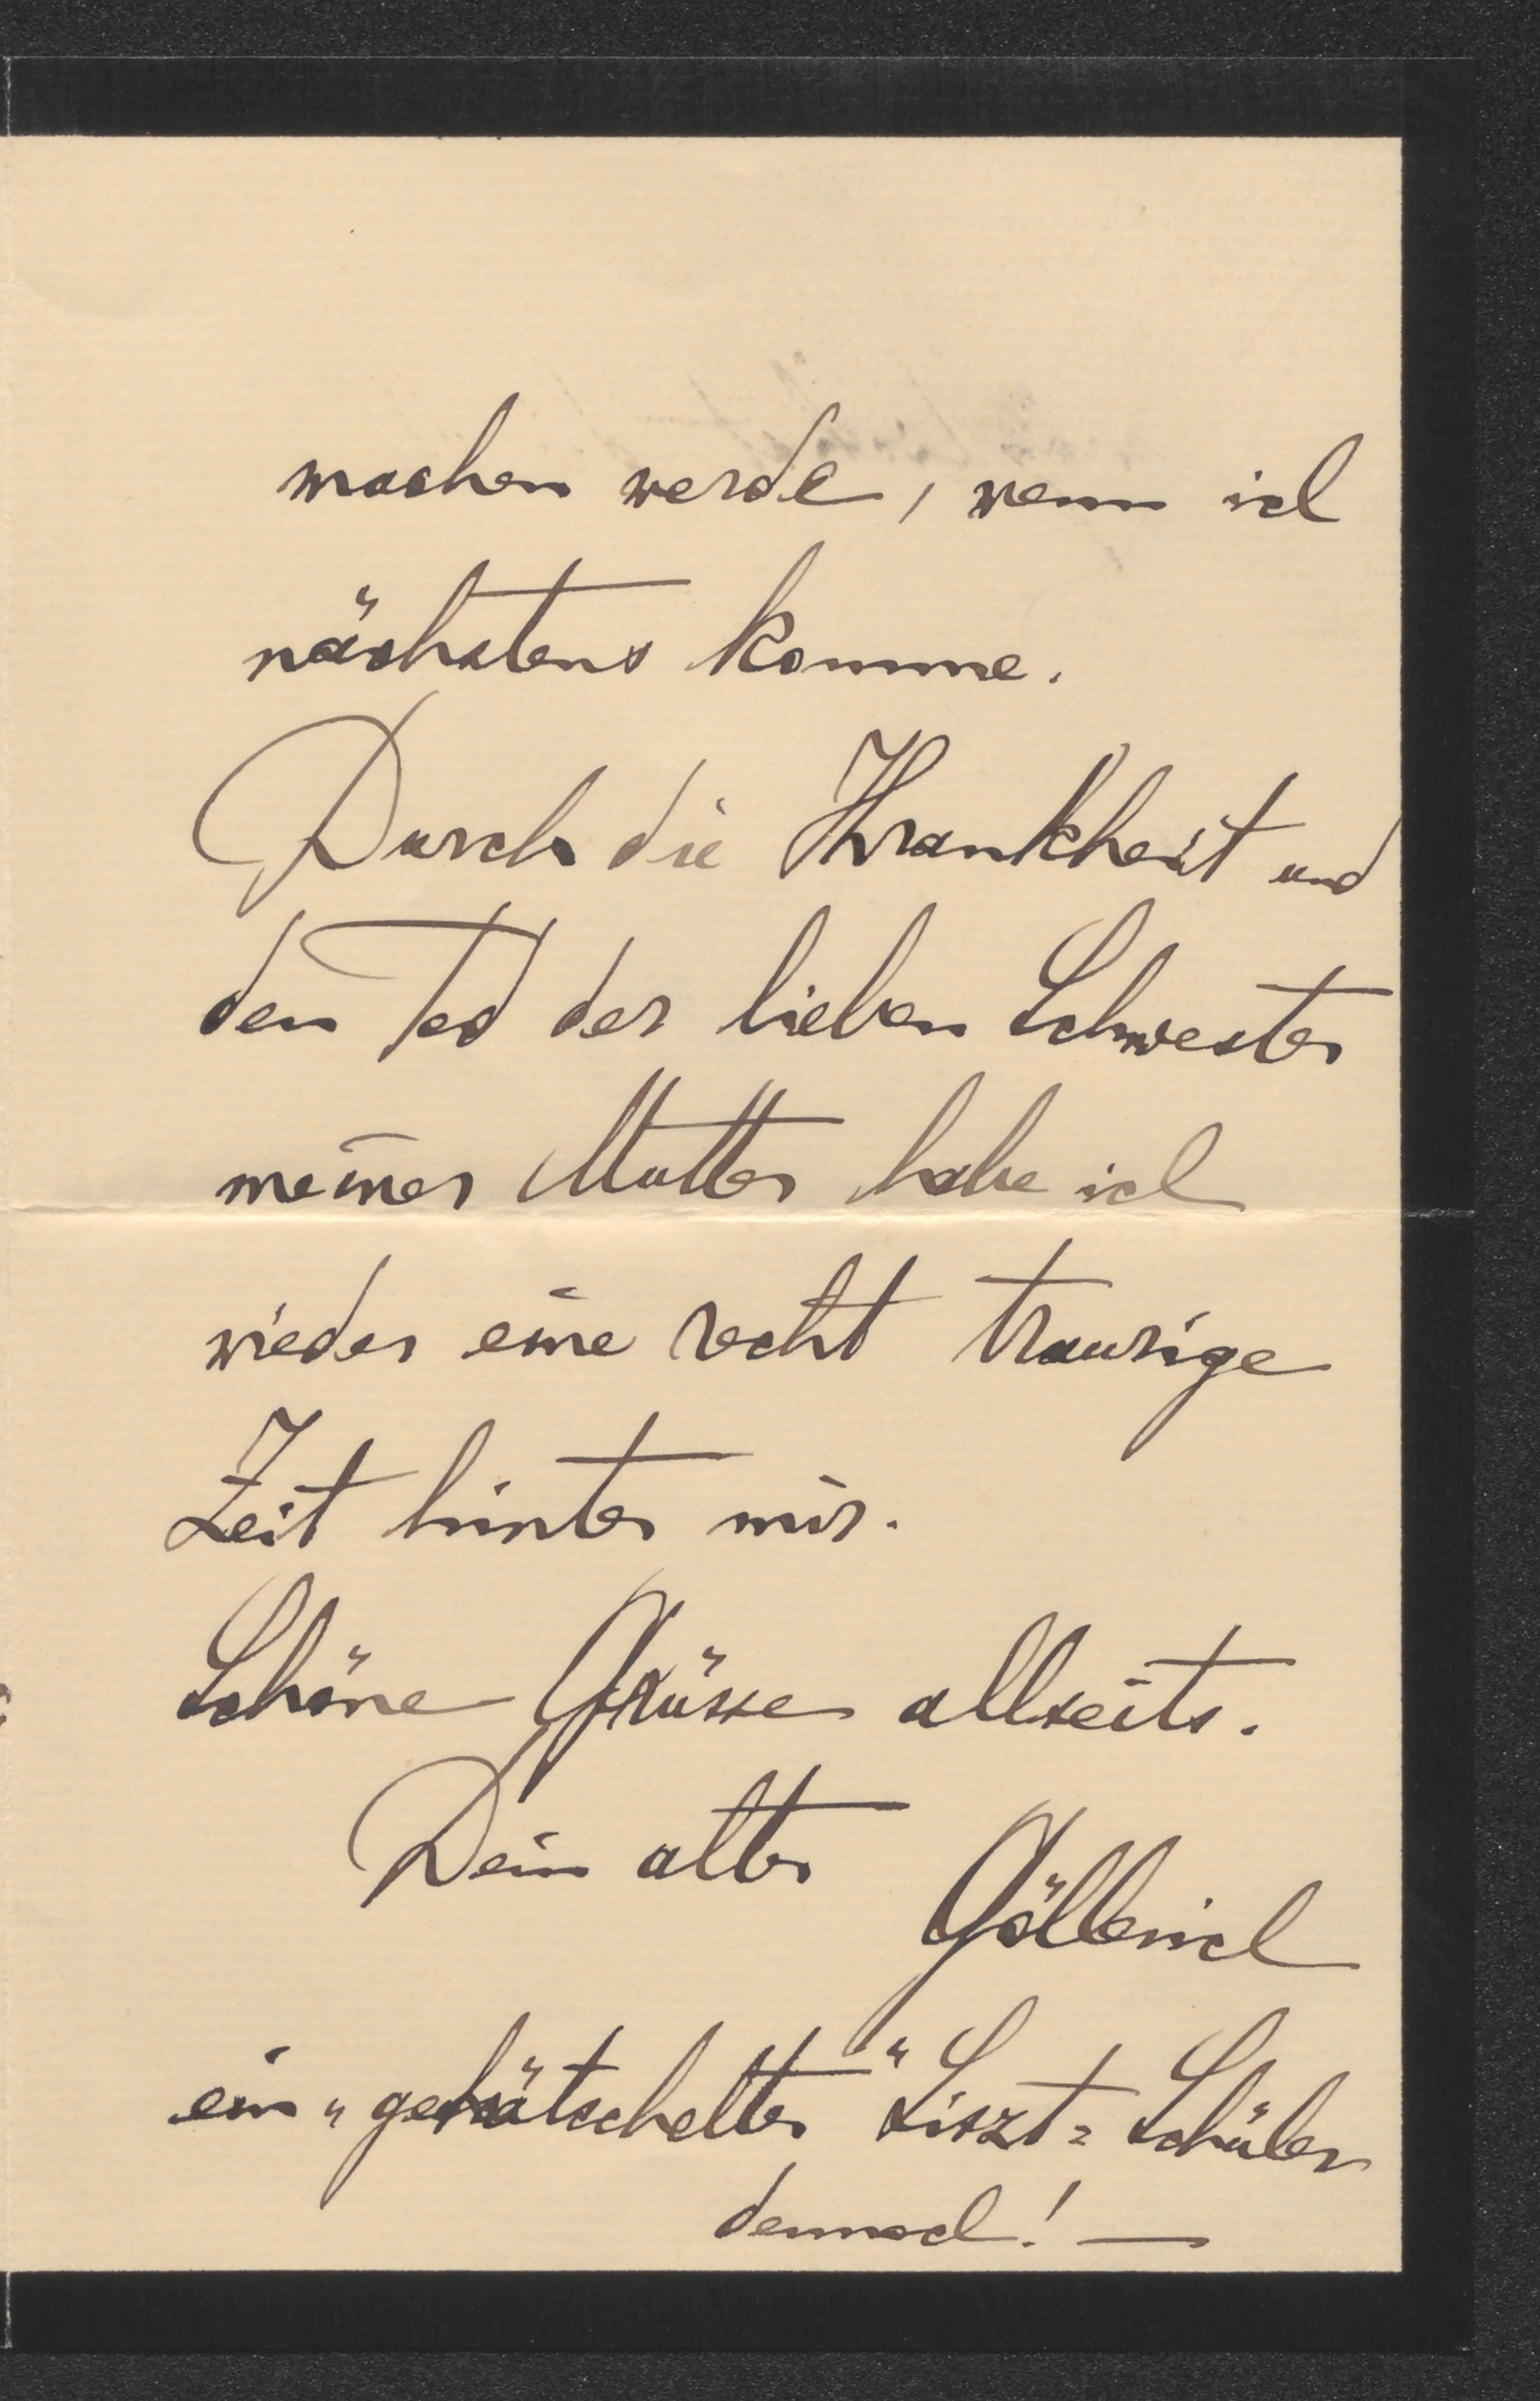 machen werde, wenn ich
nächstens komme.
Durch die Krankheit und
den Tod der lieben Schwester
meiner Mutter habe ich
wieder eine recht traurige
Zeit hinter mir.
Schöne Grüsse allseits.
Dein alter
Göllerich
ein „gehätschelter“ Liszt=Schüler
dennoch! —